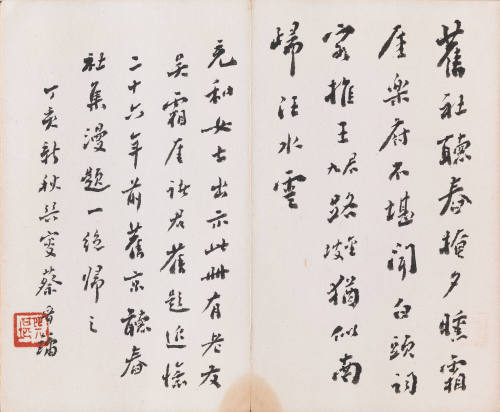 舊社聽春掩夕曛霜
厓樂府不堪聞白頭詞
客推王路猶似南
歸汪水雲
充和女士出示此冊有老友
吳霜厓諸君舊題追憶
二十六年前舊京聽春
社集漫題一絕歸之
丁亥新秋吳叟蔡晉鏞